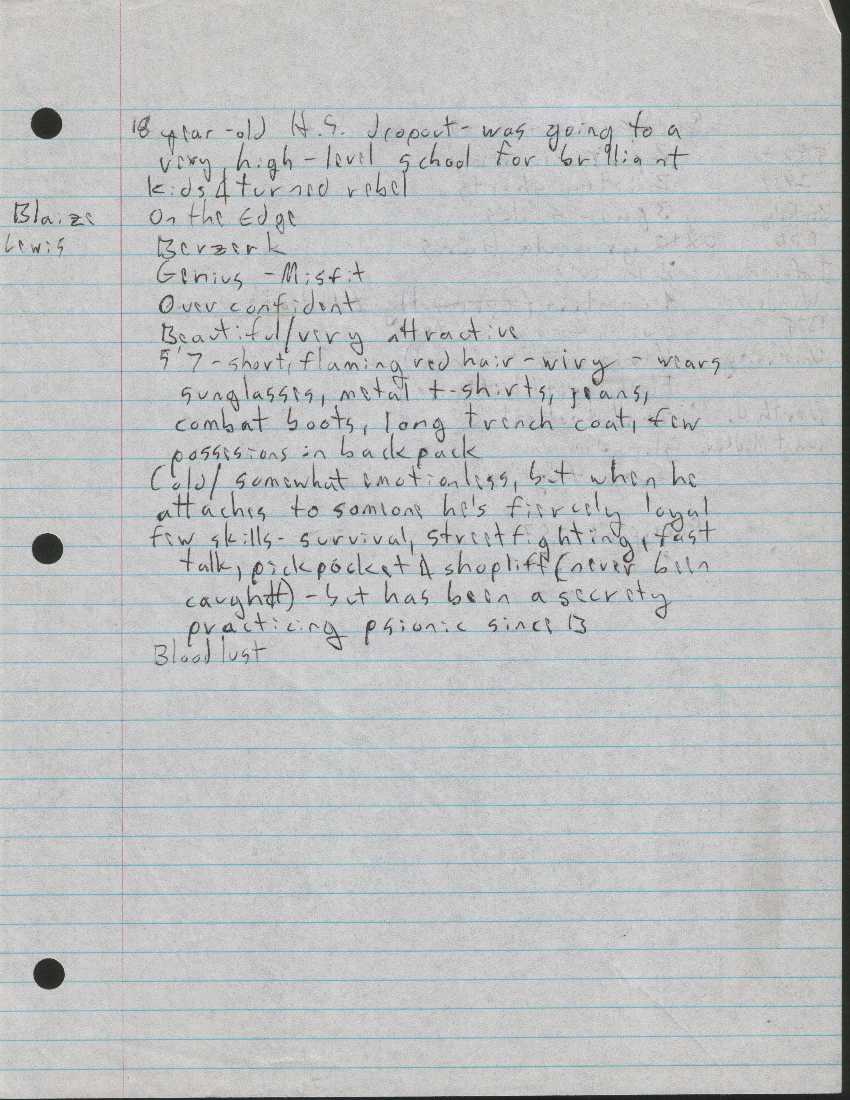 18 year-old H.S. dropout- was going to a
very high-level school for brilliant
kids & turned rebel
Blaize
Lewis
On the Edge
Berzerk
Genius - Misfit
Over confident
Beautiful/very attractive
5'7 - short, flaming red hair - wiry - wears
sunglasses, metal t-shirts, jeans,
combat boots, long trench coat, few
possesions in backpack
Cold/ somewhat emotionless, but when he
attaches to somione he's fiercely loyal
few skills- survival, streetfighting, fast
talk, pickpocket & shopliff (never been
caught) - but has been a secrety
practicing psionic since 13
Bloodlust